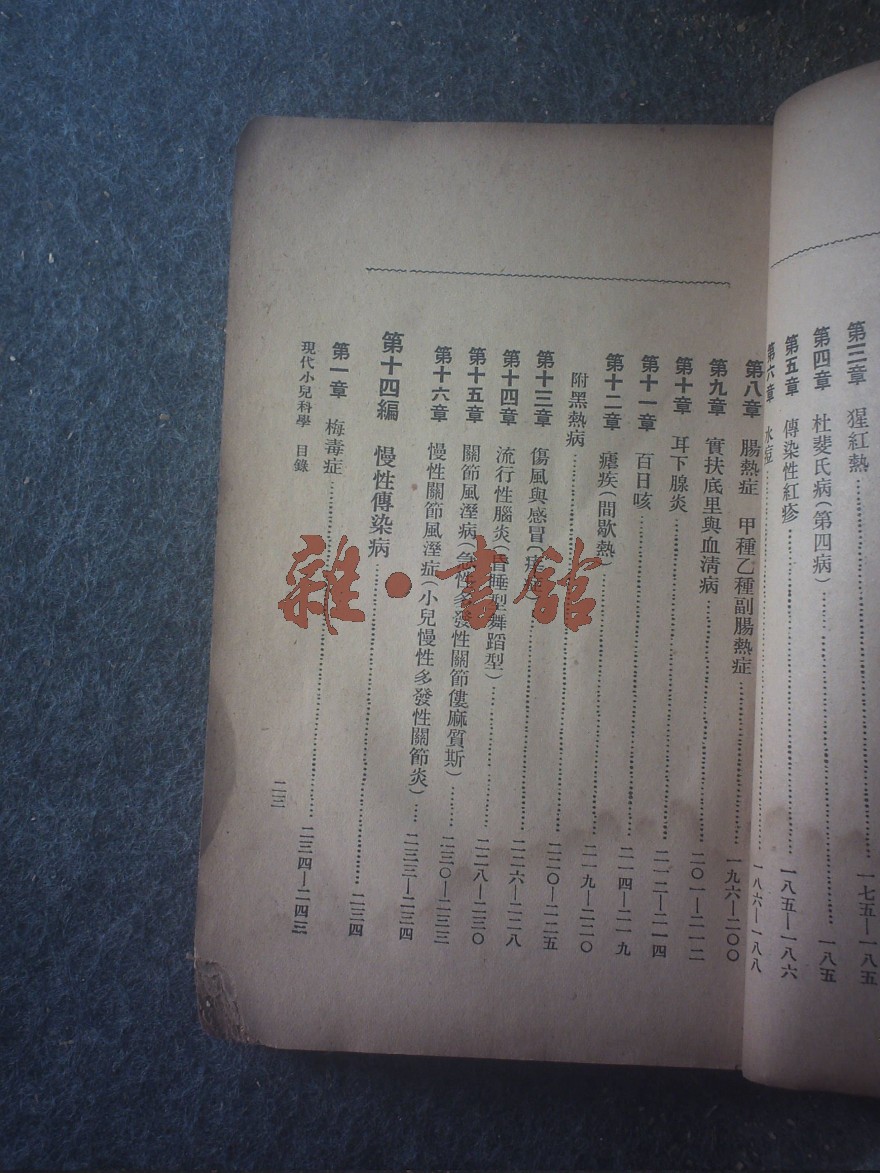 第三章 猩紅熱 一七五—一八五
第四章 杜斐氏病(第四病) 一八五
第五章 傳染性紅疹 一八五—一八六
第六章 水痘 一八六—一八八
第八章 腸熱症 甲種乙種副腸熱症 一九六—二〇〇
第九章 實扶底里與血清病 二〇一—二一二
第十章 耳下腺炎 二一二—二一四
第十一章 百日咳 二一四—二一九
第十二章 瘧疾(間歇熱) 二一九—二二〇
附黑熱病
第十三章 傷風與感冒 二二〇—二二五
第十四章 流行性腦炎(昏睡型舞蹈型) 二二六—二二八
第十五章 關節風溼病(急性多發性關節僂麻質斯) 二二八—二三〇
第十六章 慢性關節風溼症(小兒慢性多發性關節炎) 二三〇—二三三
二三三—二三四
第十四編 慢性傳染病 二三四
第一章 梅毒症 二三四—二四三
現代小兒科學 目錄
二三
雜·書館